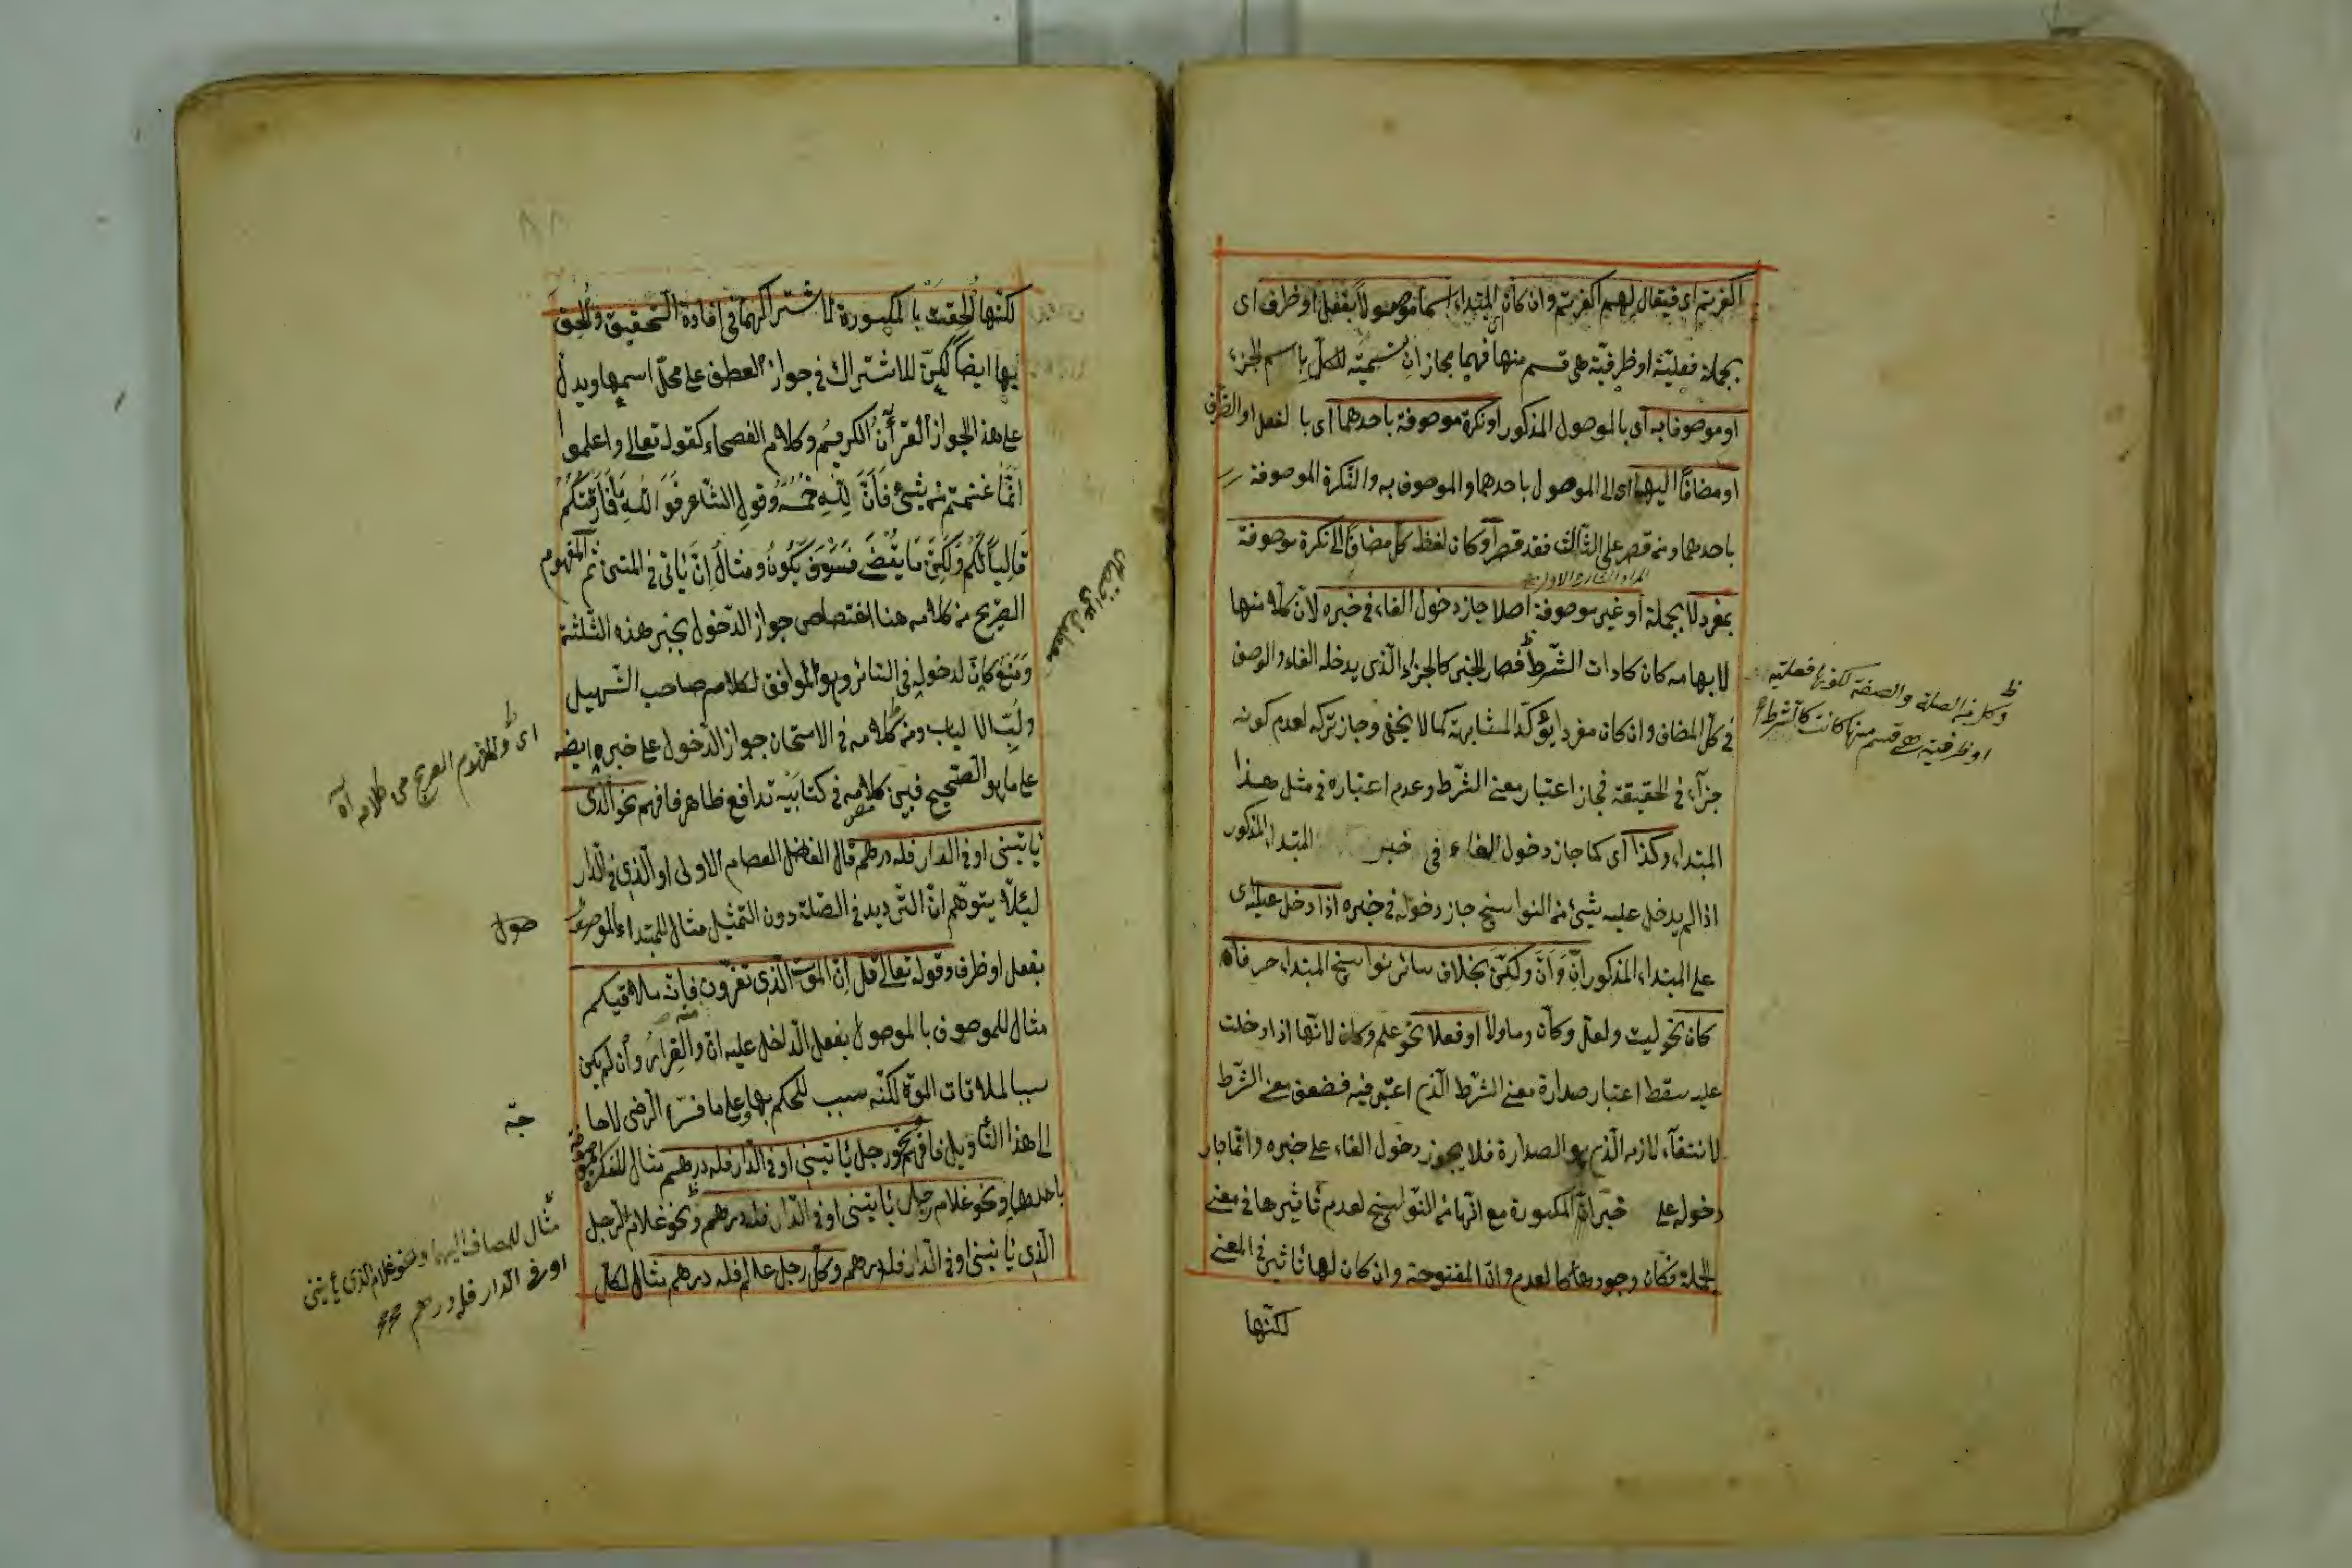 اكفرتم اى فيقال لهم اكفرتم وان كان المبتداء اسما موصولا بفعل او ظرف اى
بجملة فعليّة او ظرفيّة هى قسم منها فهما مجازان تسمية للكلّ باسم الجزء
او موصوفا به اى بالموصول المذكور او نكرة موصوفة باحدهما اى با لفعل او الظرف
او مضافاً اليهما اى الى الموصول باحدهما والموصوف به والنّكرة الموصوفة
باحدهما ومن قصر على الثّالث فقد قصر او كان لفظ كل مضافاً الى نكرة موصوفة
بمفرد لا بجملة او غير موصوفة اصلا جاز دخول الفاء فى خبره لانّ كلا منها
لابهامه كان كادات الشّرط فصار الخبر كالجزاء الّذى يدخله الفاء والوصف
فى كلّ المضاف وان كان مفردا يؤكّد المشابهة كما لا يخفى وجاز تركه لعدم كونه
جزآء فى الحقيقة فجاز اعتبار معنى الشّرط وعدم اعتباره فى مثل هذا
المبتداء وكذا اى كما جاز دخول الفاء فى خبر المبتداء المذكور
اذا لم يدخل عليه شئ من النواسخ جاز دخوله فى خبره اذا دخل عليه اى
على المبتداء المذكور انّ وَاَنَّ ولكنّ بخلاف سائر نواسخ المبتداء حرفا
كان نحو ليت ولعلّ وكأن وما ولا او فعلا نحو علم وكان لانّها اذا دخلت
عليه سقط اعتبار صدارة معنى الشّرط الّذى اعتبر فيه فضعف معنى الشّرط
لانتفاء لازمه الّذى هو الصدارة فلا يجوز دخول الفاء على خبره وانّما جاز
دخوله على خبر انّ المكسورة مع انّها من النّواسخ لعدم تأثيرها فى معنى
الجملة فكان وجودها كالعدم وانّ المفتوحة وان كان لها تأثير فى المعنى
لكنّها
وكل من الصلة والصفة لكونها فعلية
او ظرفية هى قسم منها كانت كالشرط
لكنّها اُلحقت بالمكسورة لاشتراكهما فى افادة التّحقيق واُلحق
بها ايضاً لكنّ للاشتراك فى جواز العطف على محلّ اسمها ويدل
على هذا الجواز القرآن الكريم وكلام الفصحاء كقوله تعالى واعلموا
انّما غنمتم من شئ فاَنّ لِلّهِ خُمُسَهُ وقول الشّاعر فَوَ اللّهِ مَا فَارَقْتُكُمْ
قَالِياً لَكُمْ وَلَكِنَّ مَا يُقْضَى فَسَوْفَ يَكُونُ ومثال اِنّ يأتى فى المتن ثم المفهوم
الصّريح من كلامه هنا اختصاص جواز الدّخول بخبر هذه الثّلثة
ومنع كانّ لدخوله فى السّائر وهو الموافق لكلام صاحب التّسهيل
ولبّ الالباب ومن كلامه فى الامتحان جواز الدّخول على خبره ايضا
على ما هو الصّحيح فبين كلامه فى كتابَيْه تدافع ظاهر فافهم نحو الّذى
يأتينى او فى الدار فله درهم قال الفاضل العصام الاولى او الّذى فى الدّار
ليئلّا يتوهّم انّ التّرديد فى الصّلة دون التّمثيل مثال للمبتداء الموصول
بفعل او ظرف وقوله تعالى قل اِنّ الموت الّذى تفرّون منه فانّه ملاقيكم
مثال للموصوف بالموصول بفعل الدّاخل عليه انّ والفرار وان لم يكن
سببا لملاقات الموت لكنّه سبب للحكم بها وعلى ما فسّره الرّضى لا حا
جة
الى هذا التّأويل فافهم ونحو رجل يأتينى او فى الدّار فله درهم مثال للنكرة الموصوفة
باحدهما ونحو غلام رجل يأتينى او فى الدّار فله درهم ونحو غلام الرّجل
الّذى يأتينى او فى الدّار فله درهم وكلّ رجل عالم فله درهم مثال لكلّ
اى والمفهوم الصريح من كلامه آه
صول
مثال للمضاف اليهما ونحو غلام الذى يأتينى
او فى الدار فله درهم